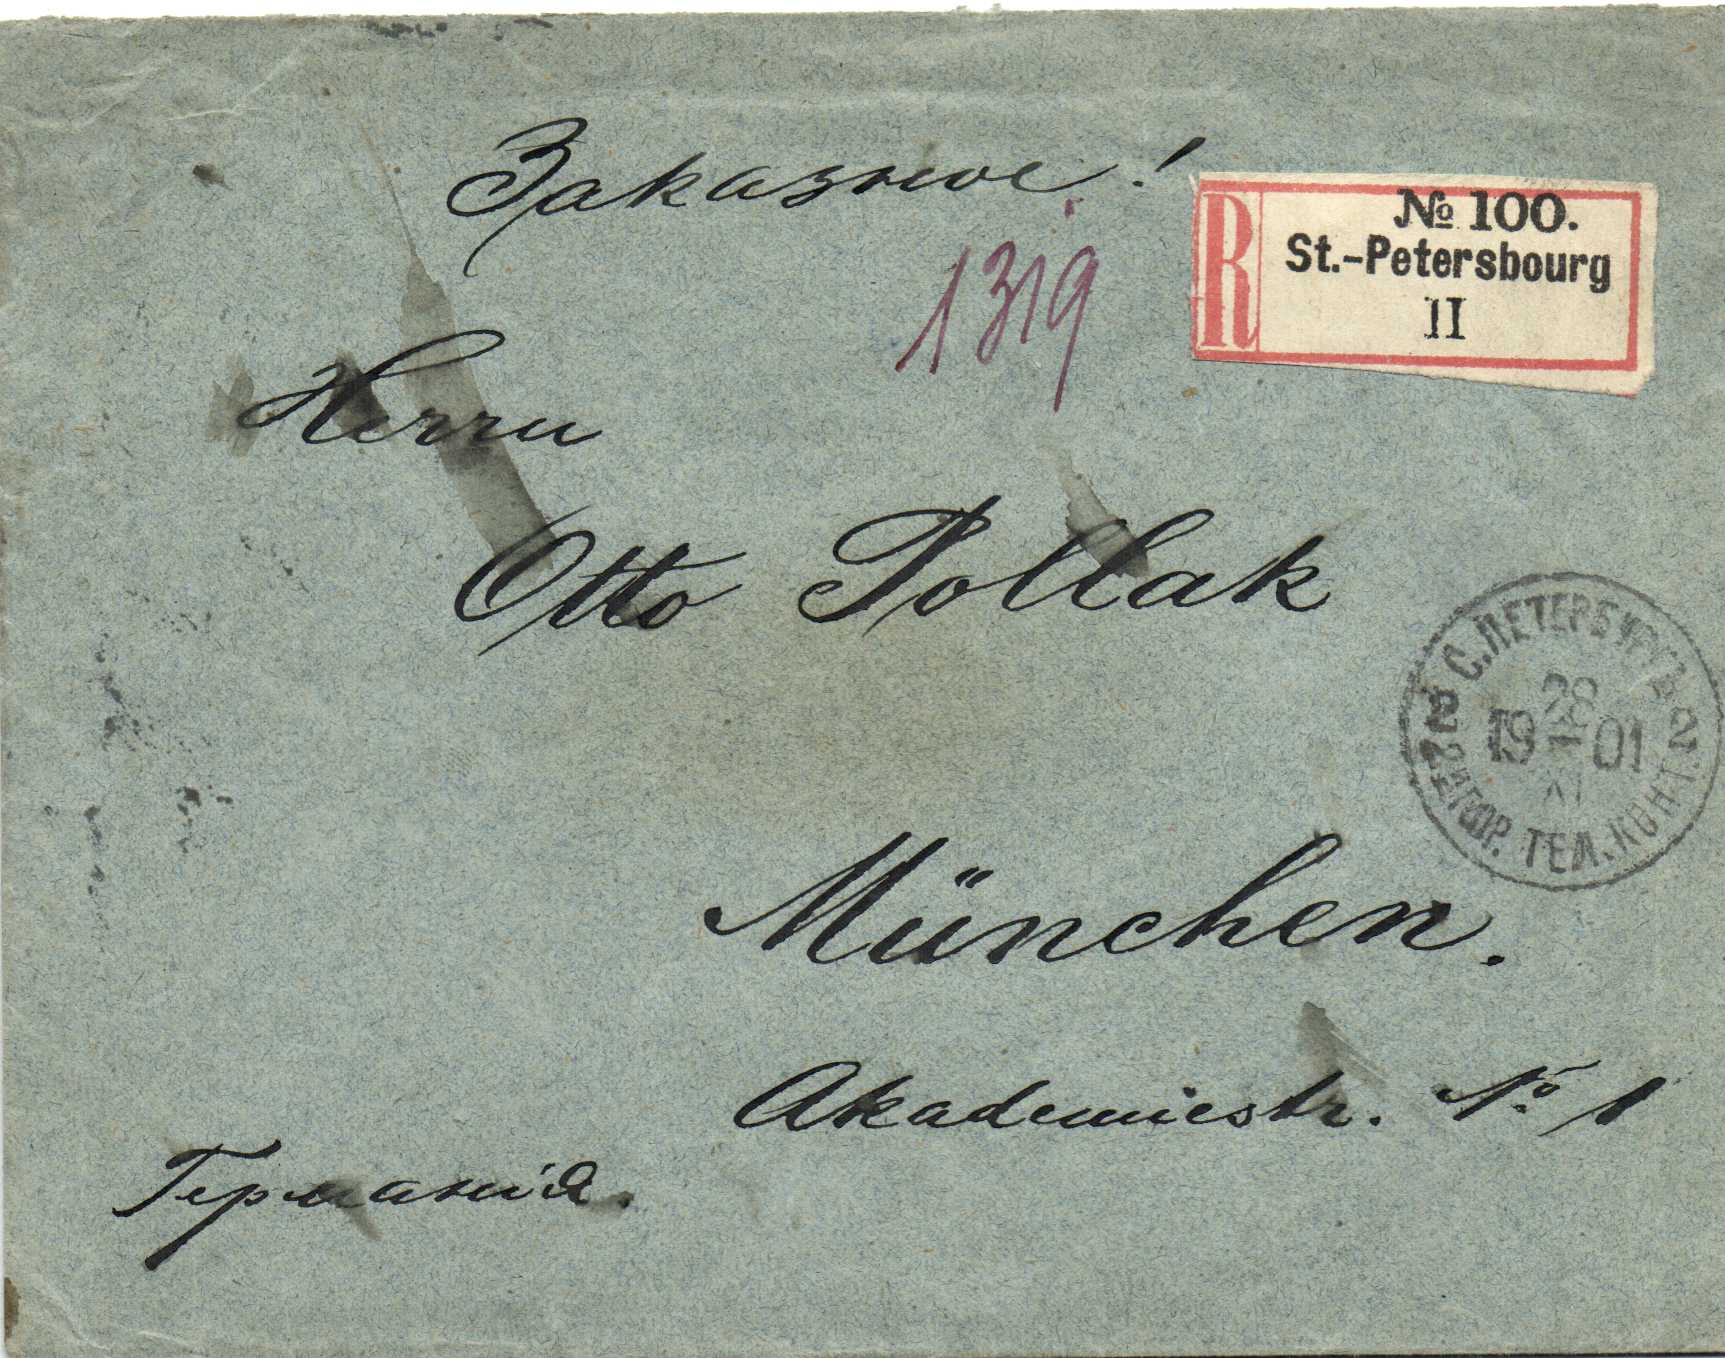 Заказное!
R
№ 100.
St.-Petersbourg
II
1319
Herrn
Otto Pollak
С.ПЕТЕРБУРГЪ
28
19 01
XI
2
2
ГОР. ТЕЛ. КОНТ.
München.
Akademiestr. № 1
Германія.